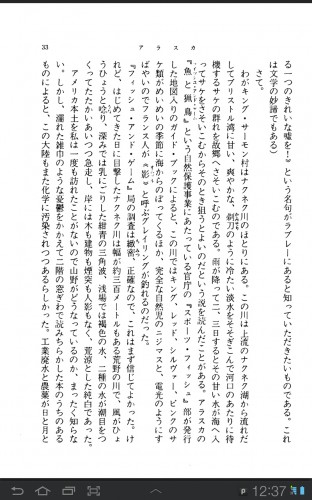 33 アラスカ
る一つのきれいな嘘を！』という名句がラブレーにあると知っていただきたいものである。これ
は文学の妙諦でもある）
さて。
わがキング・サーモン村はナクネク川のほとりにある。この川は上流のナクネク湖から流れだ
してブリストル湾に甘い、爽やかな、剃刀のように冷たい淡水をそそぎこんで河口のあたりに待
機するサケの群れを故郷へさそいこむのである。雨が降って二、三日するとその甘い水が海へ入
ってサケをさそいこむからそのとき狙うとよいのだという説を読んだことがある。アラスカの
『魚と猟鳥』という自然保護事業にあたっている官庁の『スポーツ・フィッシュ』部が発行
した地図入りのガイド・ブックによると、この川ではキング、レッド、シルヴァー、ピンクのサ
ケ類がめいめいの季節に海からのぼってくるほか、完全な自然児のニジマスと、電光のようにす
ばやいのでフランス人が《影》と呼ぶグレイリングが釣れるのだった。
『フィッシュ・アンド・ゲーム』局の調査は緻密、正確なので、これはまず信じてよかった。け
れど、はじめてきた日に目撃したナクネク川は幅が約三百メートルもある荒野の川で、風がひょ
うひょうと唸り、深みでは乳にごりした紺青の三角波、浅場では褐色の水、二種の水が潮目をつ
くってたたかいあいつつ急走し、岸には木も建物も煙突も人影もなく、荒涼とした純白であった。
アメリカ本土を私は一度も訪れたことがないので山野がどうなっているのか、まったく知らな
い。しかし、濡れた雑巾のような憂鬱をかかえて二階の窓ぎわで読みちらかした本のうちのある
ものによると、この大陸もまた化学に汚染されつつあるらしかった。工業廃水と農薬が日と月と
12:37